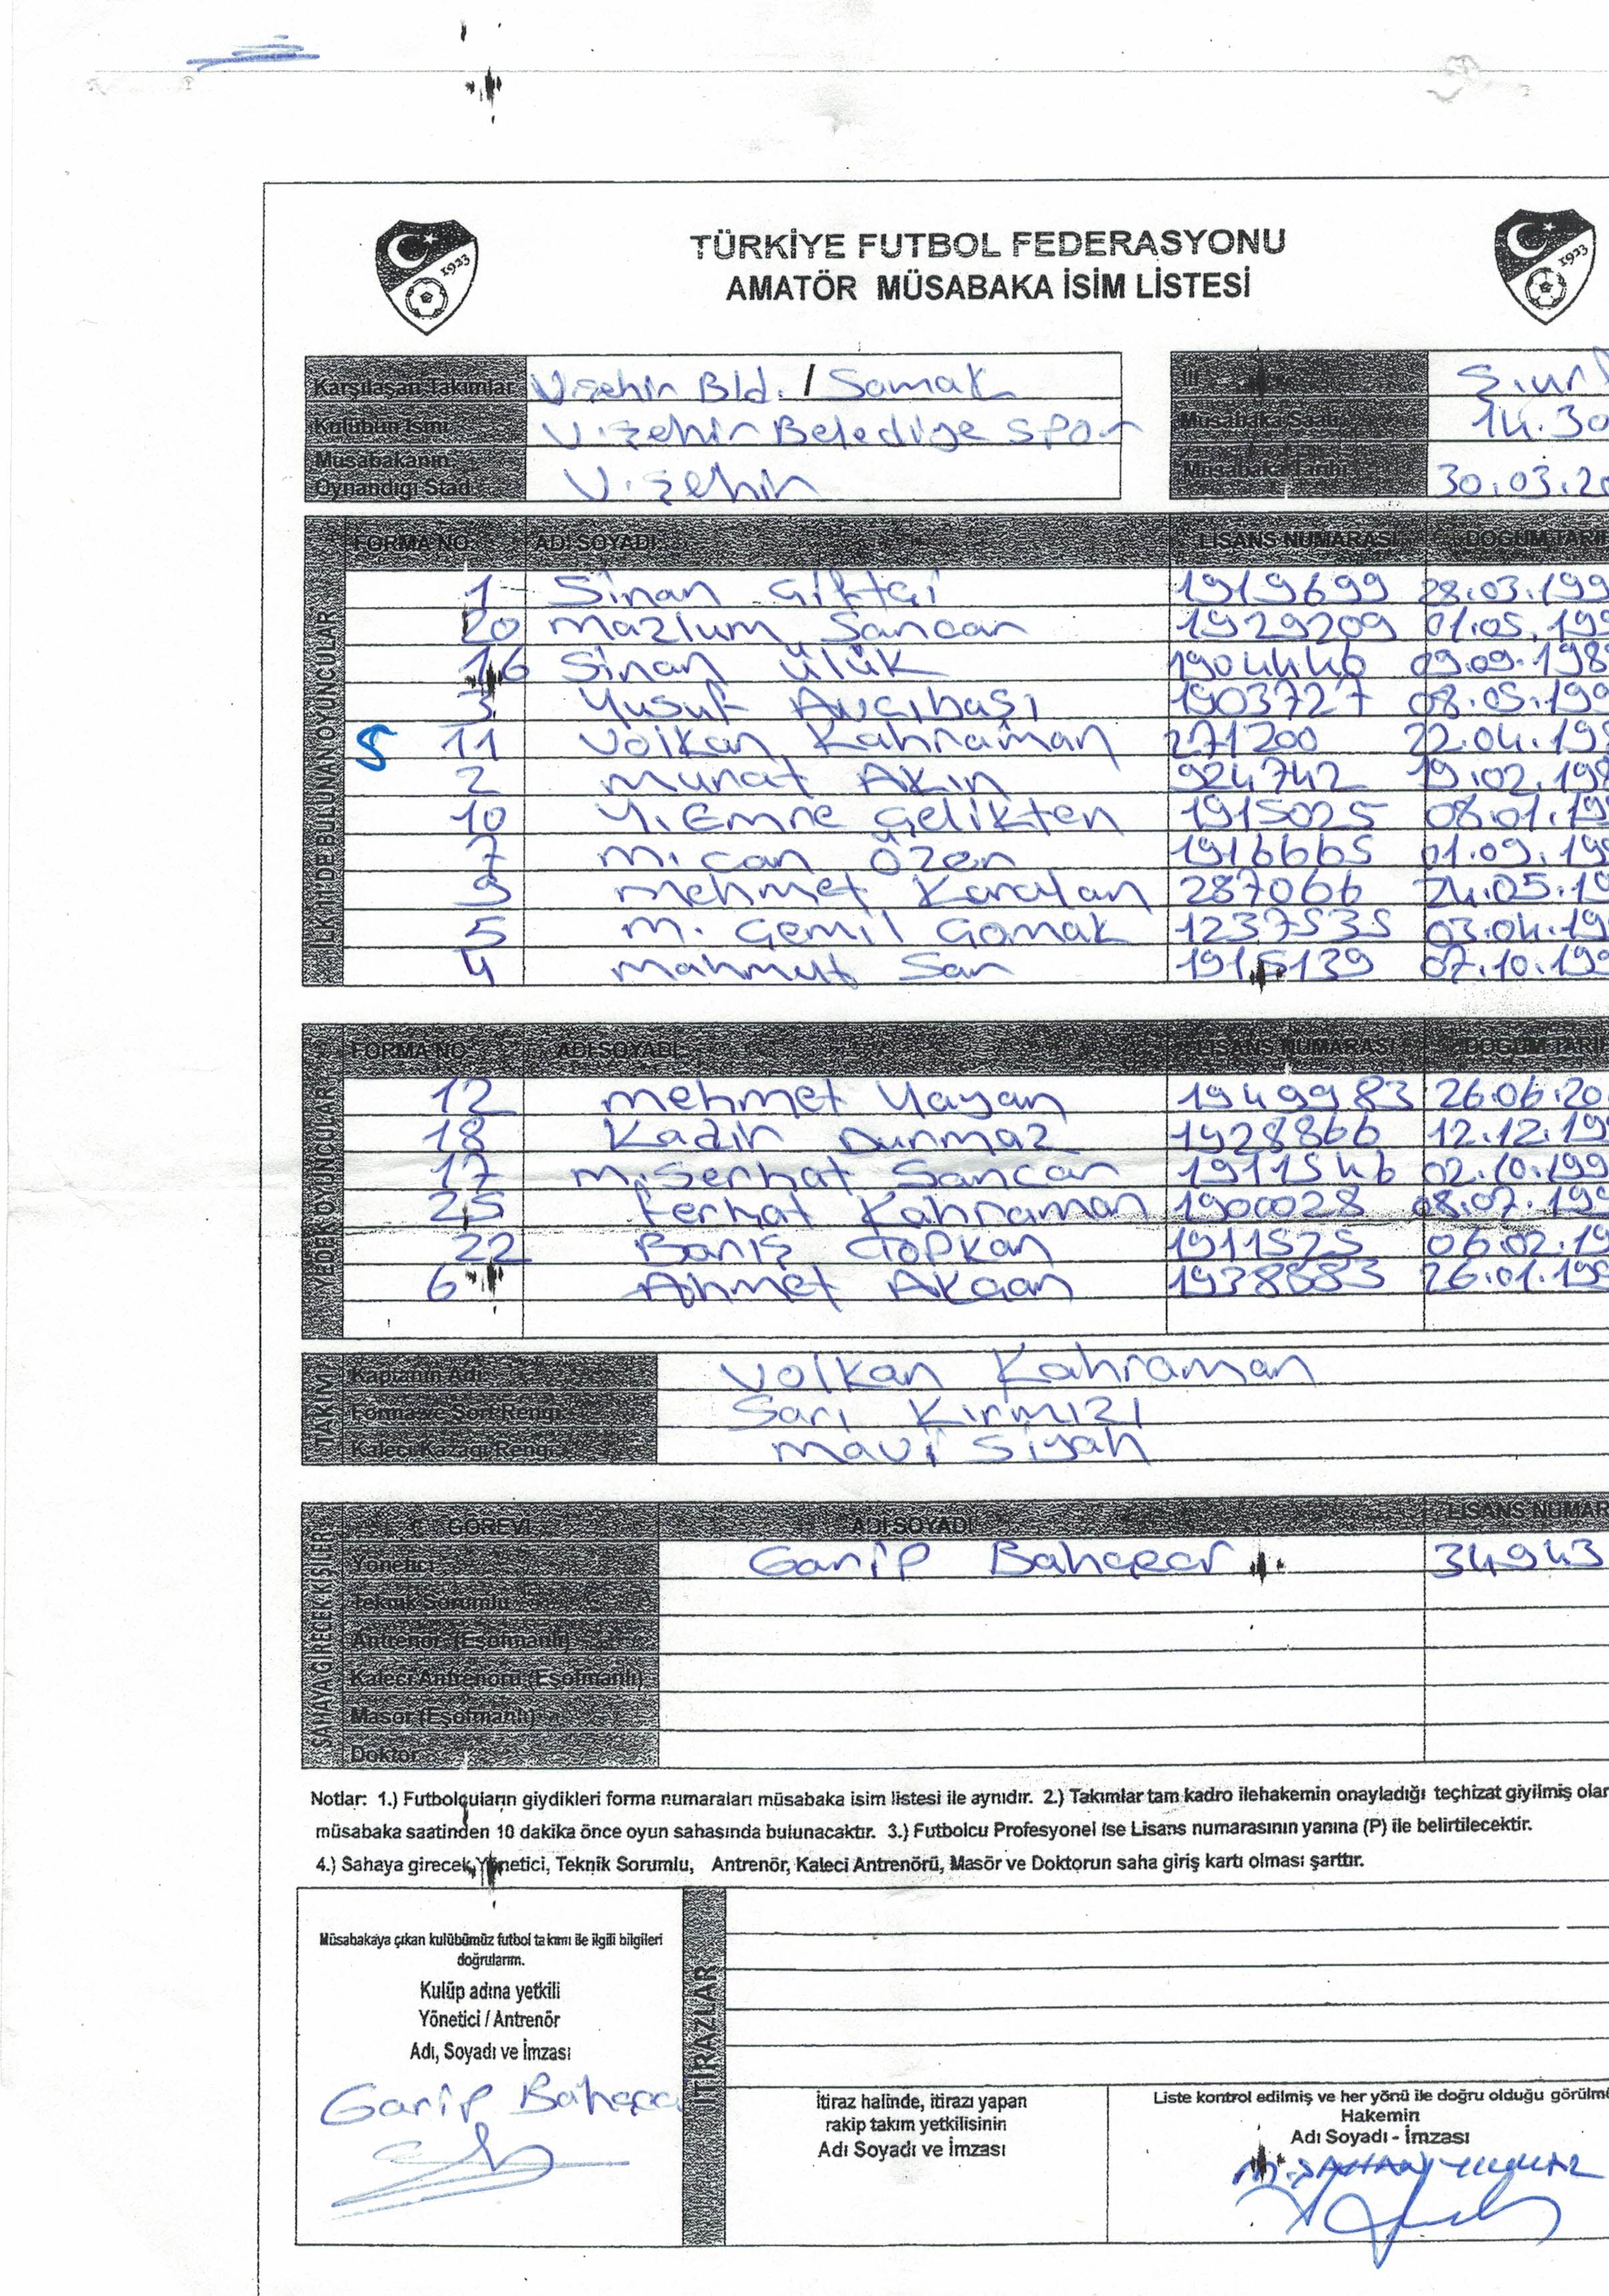 TÜRKİYE FUTBOL FEDERASYONU
AMATÖR MÜSABAKA İSİM LİSTESİ
Karşılaşan Takımlar V.şehir Bld. / Samak İli Ş.urf
Kulübün İsmi V.şehir Belediye spor Müsabaka Saati 14.30
Müsabakanın Oynandığı Stad V.şehir Müsabaka Tarihi 30.03.20
İLK 11'DE BULUNAN OYUNCULAR
FORMA NO ADI SOYADI LİSANS NUMARASI DOĞUM TARİ
1 Sinan Çiftçi 1919699 28.03.199
20 Mazlum Sancar 1929209 01.05.199
16 Sinan Ülük 1904446 09.09.198
3 Yusuf Avcıbaşı 1903727 08.05.199
S 11 Volkan Kahraman 271200 22.04.19
2 Murat Akın 924742 19.02.198
10 Y. Emre Çelikten 1915025 08.01.19
7 M. Can Özen 1916665 01.09.199
9 Mehmet Karatan 287066 24.05.19
5 M. Cemil Çamak 1237535 03.04.19
4 Mahmut Sarı 1915139 07.10.199
YEDEK OYUNCULAR
FORMA NO ADI SOYADI LİSANS NUMARASI DOĞUM TARİ
12 Mehmet Yayan 1949983 26.06.20
18 Kadir Durmaz 1928866 12.12.19
17 M. Serhat Sancar 1911546 02.10.199
25 Ferhat Kahraman 1900028 08.07.199
22 Barış Topkan 1911525 06.02.19
6 Ahmet Akcan 1938883 26.01.199
TAKIM
Kaptanın Adı Volkan Kahraman
Forma ve Şort Rengi Sarı Kırmızı
Kaleci Kazağı Rengi Mavi Siyah
SAHAYA GİRECEK KİŞİLER
GÖREVİ ADI SOYADI LİSANS NUMAR
Yönetici Garip Bahçeci 34943
Teknik Sorumlu
Antrenör (Eşofmanlı)
Kaleci Antrenörü (Eşofmanlı)
Masör (Eşofmanlı)
Doktor
Notlar: 1.) Futbolcuların giydikleri forma numaraları müsabaka isim listesi ile aynıdır. 2.) Takımlar tam kadro ilehakemin onayladığı teçhizat giyilmiş olar
müsabaka saatinden 10 dakika önce oyun sahasında bulunacaktır. 3.) Futbolcu Profesyonel ise Lisans numarasının yanına (P) ile belirtilecektir.
4.) Sahaya girecek, Yönetici, Teknik Sorumlu, Antrenör, Kaleci Antrenörü, Masör ve Doktorun saha giriş kartı olması şarttır.
Müsabakaya çıkan kulübümüz futbol takımı ile ilgili bilgileri
doğrularım.
Kulüp adına yetkili
Yönetici / Antrenör
Adı, Soyadı ve İmzası
Garip Bahçeci
İTİRAZLAR
İtiraz halinde, itirazı yapan
rakip takım yetkilisinin
Adı Soyadı ve İmzası
Liste kontrol edilmiş ve her yönü ile doğru olduğu görülmü
Hakemin
Adı Soyadı - İmzası